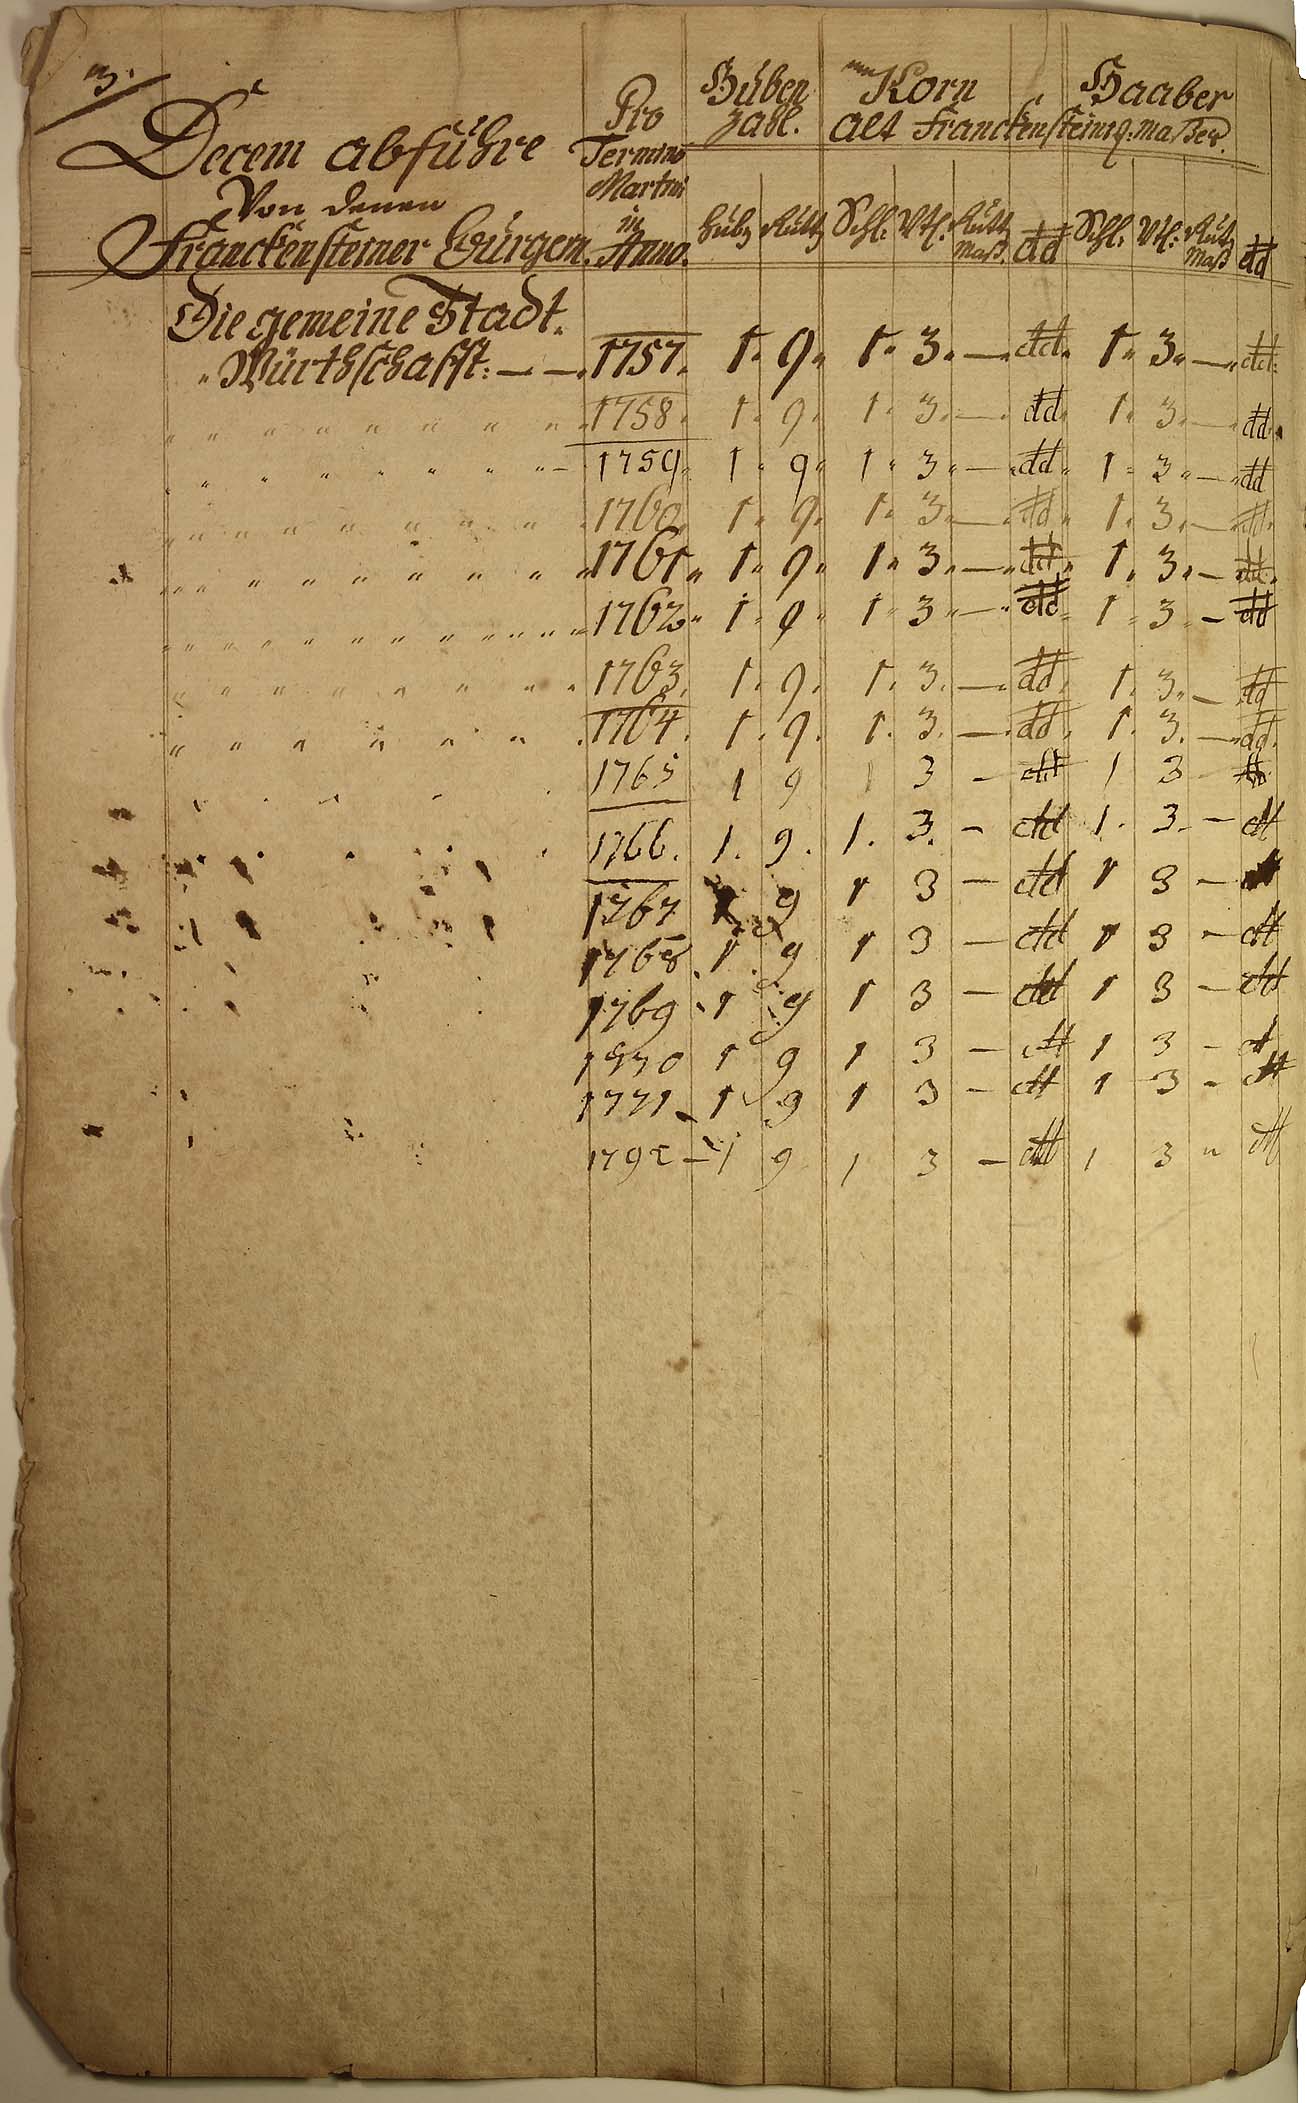 3.
Decem abführe
Von denen
Franckensteiner Bürgern.
Pro
Termino
Martini
in
Anno.
Huben
Zahl.
Korn
Haaber
alt Franckensteinig. Maßer.
Hub. Rutt. Schl: Vtl. Rutt Maß. dd Schl: Vtl: Rutt Maß dd
Die gemeine Stadt
Würthschafft: — — 1757. 1. 9. 1. 3. — dd. 1. 3. — dd.
" 1758. 1. 9. 1. 3. — dd. 1. 3. — dd.
" 1759. 1. 9. 1. 3. — dd. 1. 3. — dd
" 1760. 1. 9. 1. 3. — dd. 1. 3. — dd.
" 1761. 1. 9. 1. 3. — dd. 1. 3. — dd.
" 1762. 1. 9. 1. 3. — dd. 1. 3. — dd
" 1763. 1. 9. 1. 3. — dd. 1. 3. — dd
" 1764. 1. 9. 1. 3. — dd. 1. 3. — dd.
1765 1 9 1 3 — dd 1 3 — dd
1766. 1. 9. 1. 3. — dd 1. 3. — dd
1767 1 9 1 3 — dd 1 3 — dd
1768 1 9 1 3 — dd 1 3 — dd
1769 1 9 1 3 — dd 1 3 — dd
1770 1 9 1 3 — dd 1 3 — dd
1771 1 9 1 3 — dd 1 3 — dd
1772 — 1 9 1 3 — dd 1 3 " dd